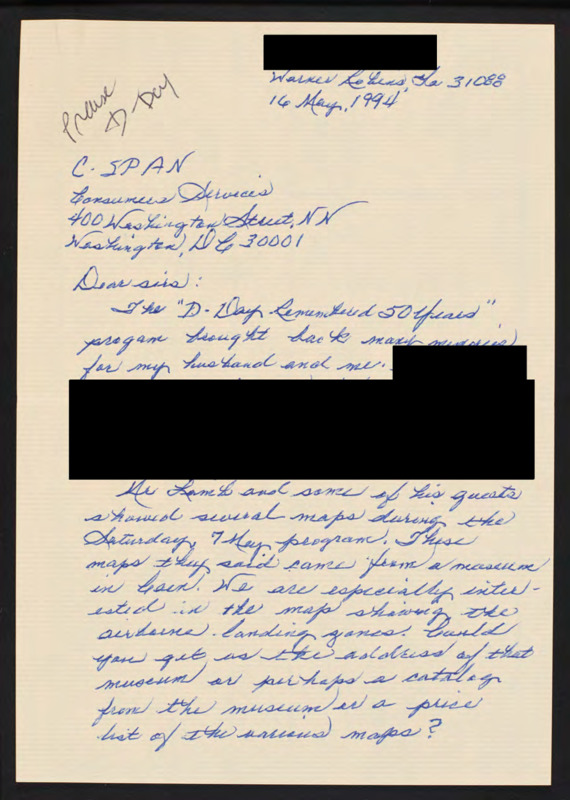 Warner Robins, Ga 31088
16 May, 1994
Praise
D-Day
C-SPAN
Consumers Services
400 Washington Street, NN
Washington, DC 30001
Dear sirs:
The "D-Day Remembered 50 Years"
progam brought back many memories
for my husband and me.
Mr Lamb and some of his guests
showed several maps during the
Saturday, 7 May program. These
maps they said came from a museum
in Caen. We are especially inter-
ested in the map showing the
airborne landing zones. Could
you get us the address of that
museum or perhaps a catalog
from the museum or a price
list of the various maps?